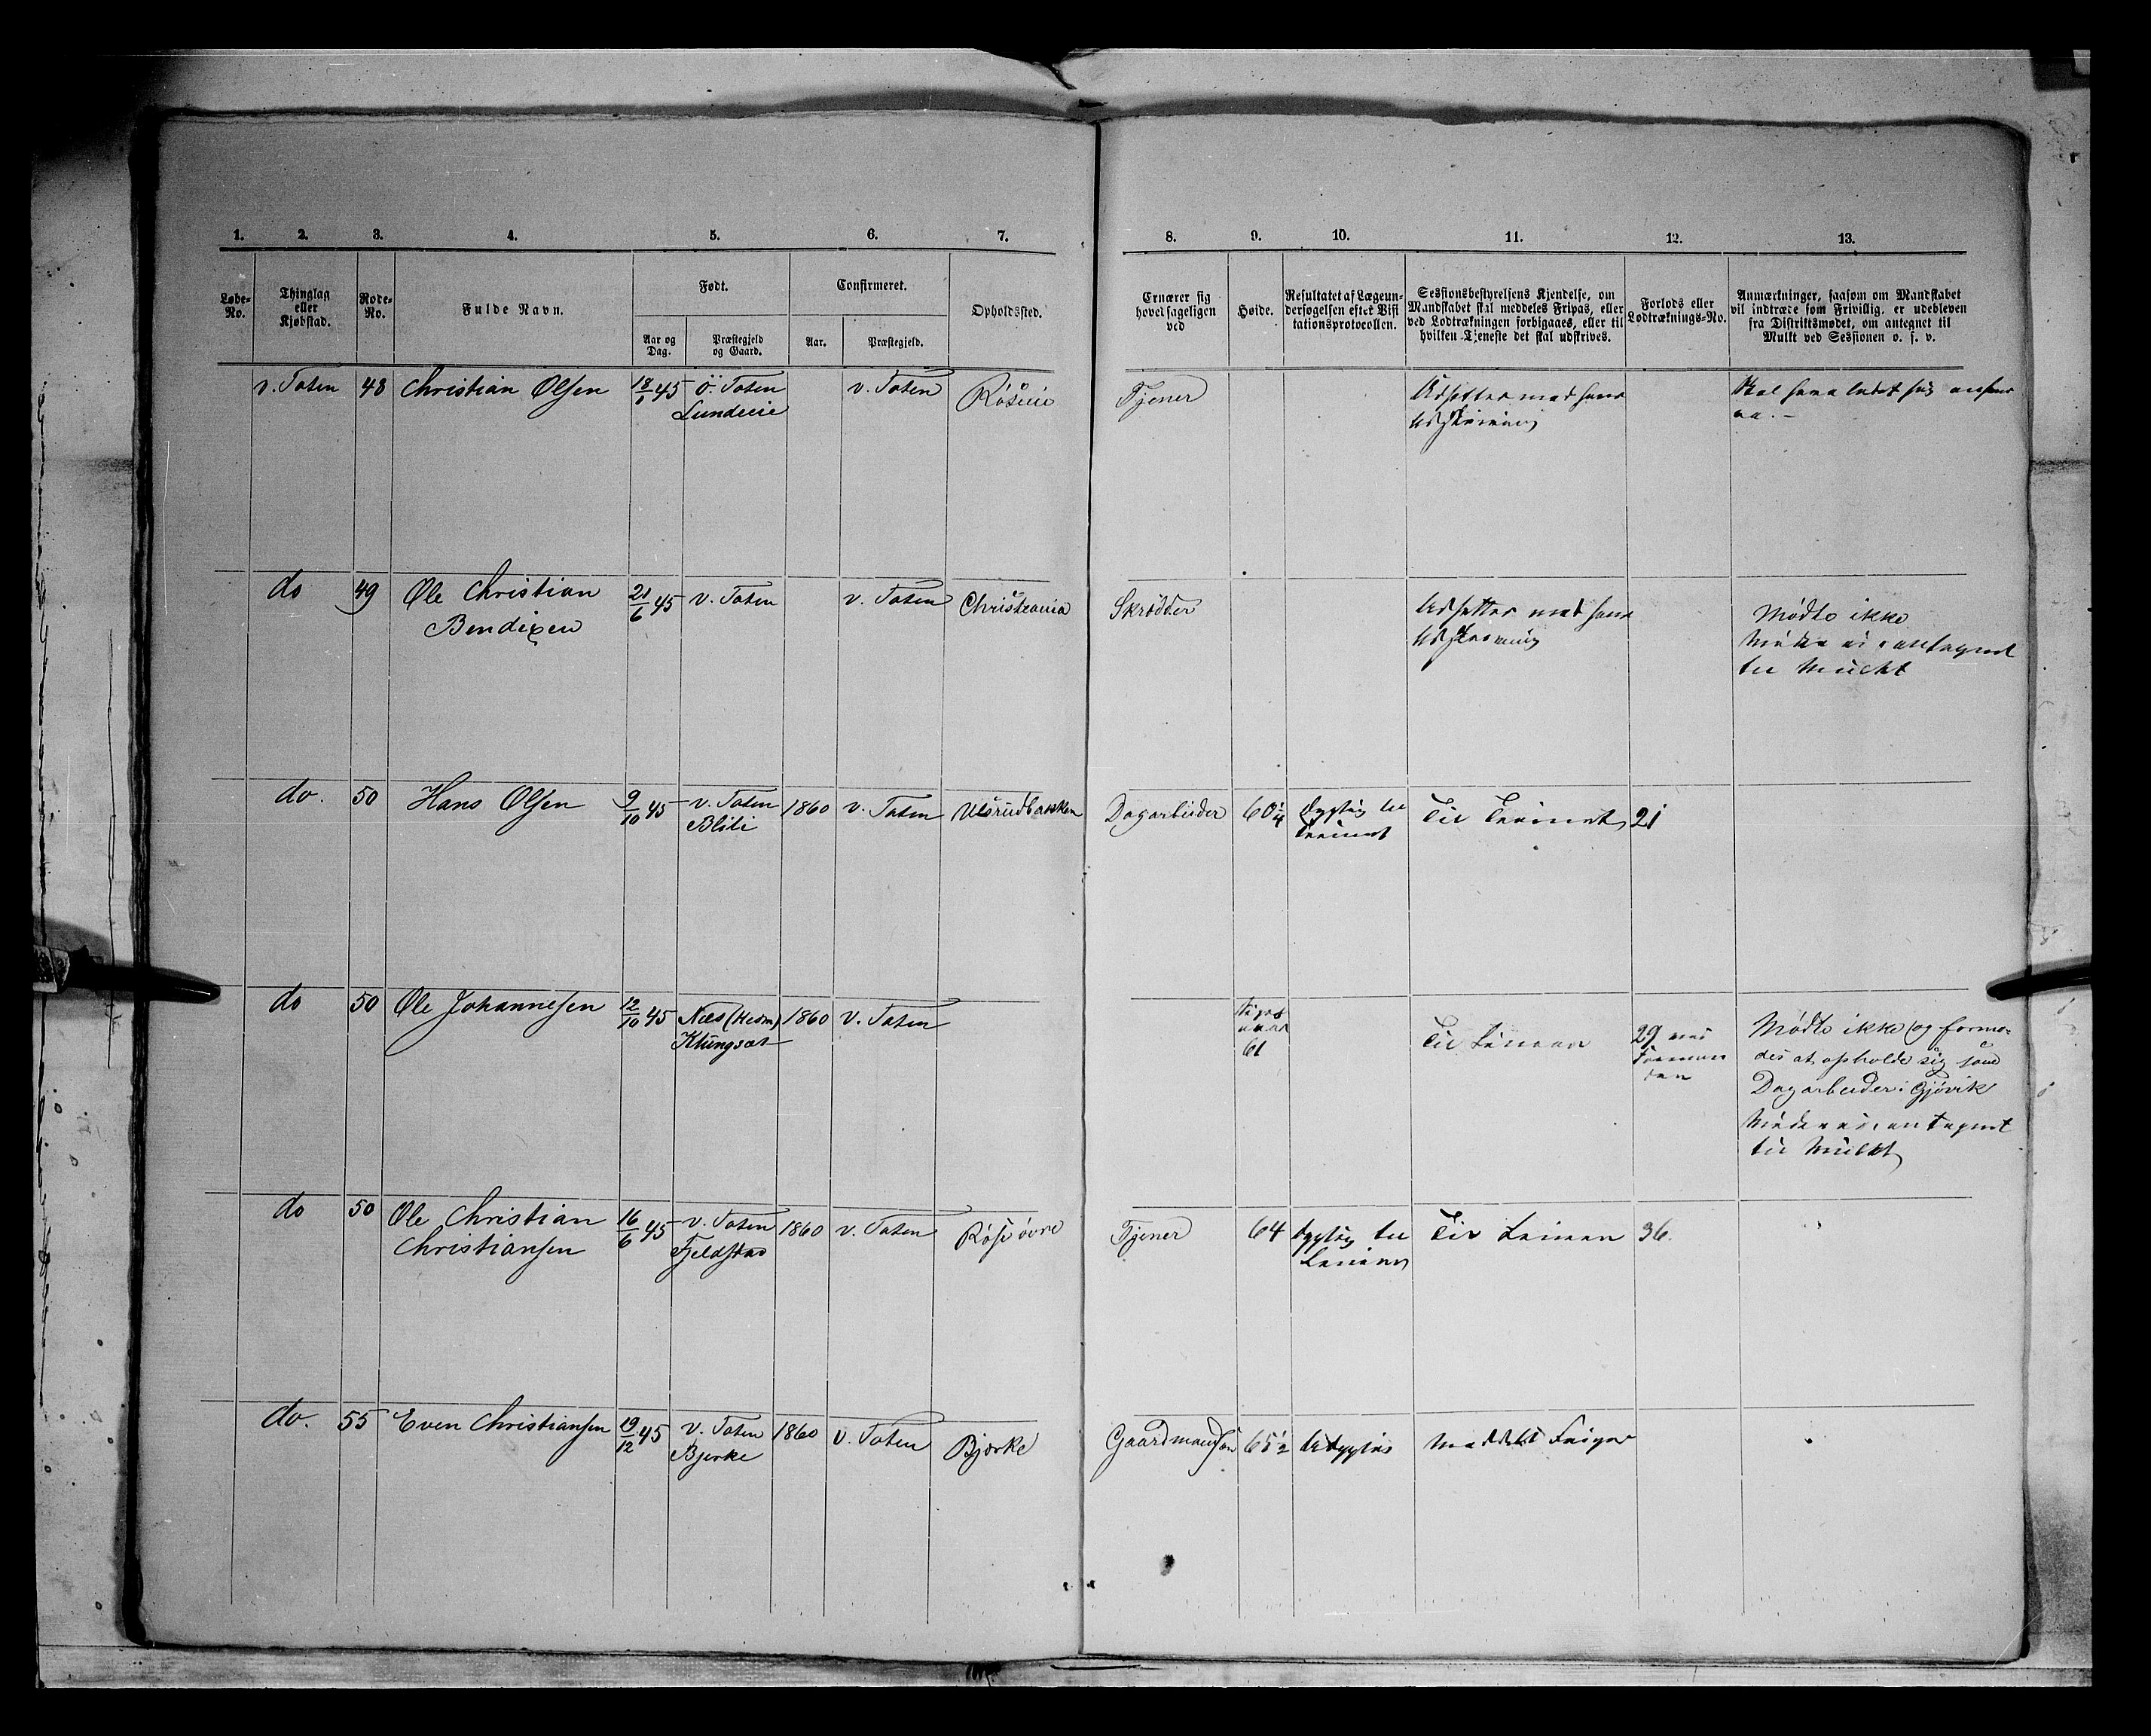 1. 2. 3. 4. 5. 6. 7.
Løbe-No. Thinglag eller Kjøbstad. Rode-No. Fulde Navn. Født. Confirmeret. Opholdssted.
Aar og Dag. Præstegjeld og Gaard. Aar. Præstegjeld.
8. 9. 10. 11. 12. 13.
Ernærer sig hovedsageligen ved
Høide.
Resultatet af Lægeundersøgelsen efter Visitationsprotocollen.
Sessionsbestyrelsens Kjendelse, om Mandskabet skal meddeles Fripas, eller ved Lodtrækningen forbigaaes, eller til hvilken Tjeneste det skal udskrives.
Forlods eller Lodtræknings-No.
Anmærkninger, saasom om Mandskabet vil indtræde som Frivillig, er udebleven fra Distriktsmødet, om antegnet til Mulkt ved Sessionen o. s. v.
v. Toten 48 Christian Olsen 45 ö. Toten v. Toten Röseie Tjener Udsættes med hans Skal have ladet sig
Lundeeie Udskrivning
do 49 Ole Christian 21/6 45 v. Toten v. Toten Christiania Skrædder Udsættes med hans Mødte ikke
Bendixen Udskrivning Møder ei, antegnet
til Mulkt
do. 50 Hans Olsen 9/10 45 v. Toten 1860 v. Toten Ulsrudbakken Dagarbeider 60 1/4 Dygtig til Til Trainet 21
Blili Trainet
do 50 Ole Johannesen 12/10 45 Næs (Hedm) 1860 v. Toten Til Linien 29 Mødte ikke og formo-
Klungsæt 61 des at opholde sig som
Dagarbeider i Gjövik
Møder ei, antegnet
til Mulkt
do 50 Ole Christian 16/6 45 v. Toten 1860 v. Toten Röse övre Tjener 64 Dygtig til Til Linien 36.
Christiansen Fjeldstad Linien
do. 55 Even Christiansen 19/12 45 v. Toten 1860 v. Toten Bjerke Gaardmandsön 65 1/2 Udygtig Meddelt Fripas
Bjerke